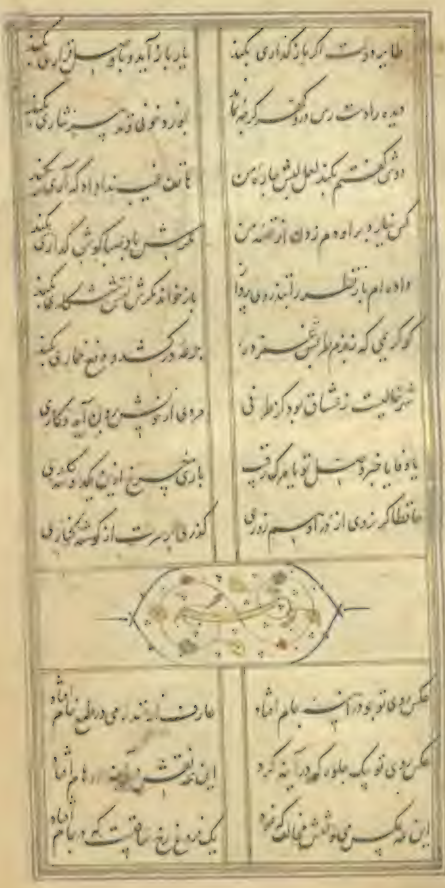 طایر دولت اگر باز گذاری بکند یار باز آید و با وصل قراری بکند
دیده را دستگه در و گهر گرچه نماند بخورد خونی و تدبیر نثاری بکند
دوش گفتم بکند لعل لبش چاره من هاتف غیب ندا داد که آری بکند
کس نیارد بر او دم زدن از قصه من مگرش باد صبا گوش گذاری بکند
داده‌ام باز نظر را بتذروی پرواز باز خواند مگرش نقش و شکاری بکند
کو کریمی که ز بزم طربش غمزده جرعه درکشد و دفع خماری بکند
شهر خالیست ز عشاق بود کز طرفی مردی از خویش برون آید و کاری
یا وفا یا خبر وصل تو یا مرگ رقیب بازی چرخ ازین یک دو کاری
حافظا گر نروی از در او هم روزی گذری بر سرت از گوشه کناری
عکس روی تو چو در آینه جام افتاد عارف از خنده می در طمع خام افتاد
عکس روی تو بیک جلوه که در آینه کرد این همه نقش در آینه اوهام افتاد
این همه عکس می و نقش مخالف که نمود یک فروغ رخ ساقیست که در جام افتاد